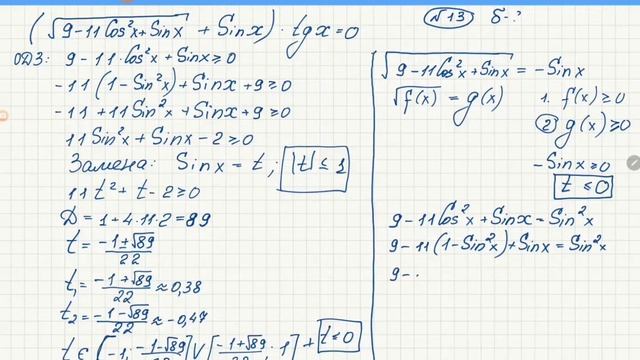 (√(9-11Cos²x+Sinx) + Sinx) · tgx=0
№13 б-?
ОДЗ: 9-11·Cos²x+Sinx≥0
-11(1-Sin²x)+Sinx+9≥0
-11+11Sin²x+Sinx+9≥0
11Sin²x+Sinx-2≥0
Замена: Sinx=t; |t|≤1
11t²+t-2≥0
D=1+4·11·2=89
t=(-1±√89)/22
t₁=(-1+√89)/22≈0,38
t₂=(-1-√89)/22≈-0,47
t∈[-1; (-1-√89)/22]∪[(-1+√89)/22; 1] + t≤0
√(9-11Cos²x+Sinx) = -Sinx
√f(x) = g(x) 1. f(x)≥0
2 g(x)≥0
-Sinx≥0
t≤0
9-11Cos²x+Sinx=Sin²x
9-11(1-Sin²x)+Sinx=Sin²x
9-